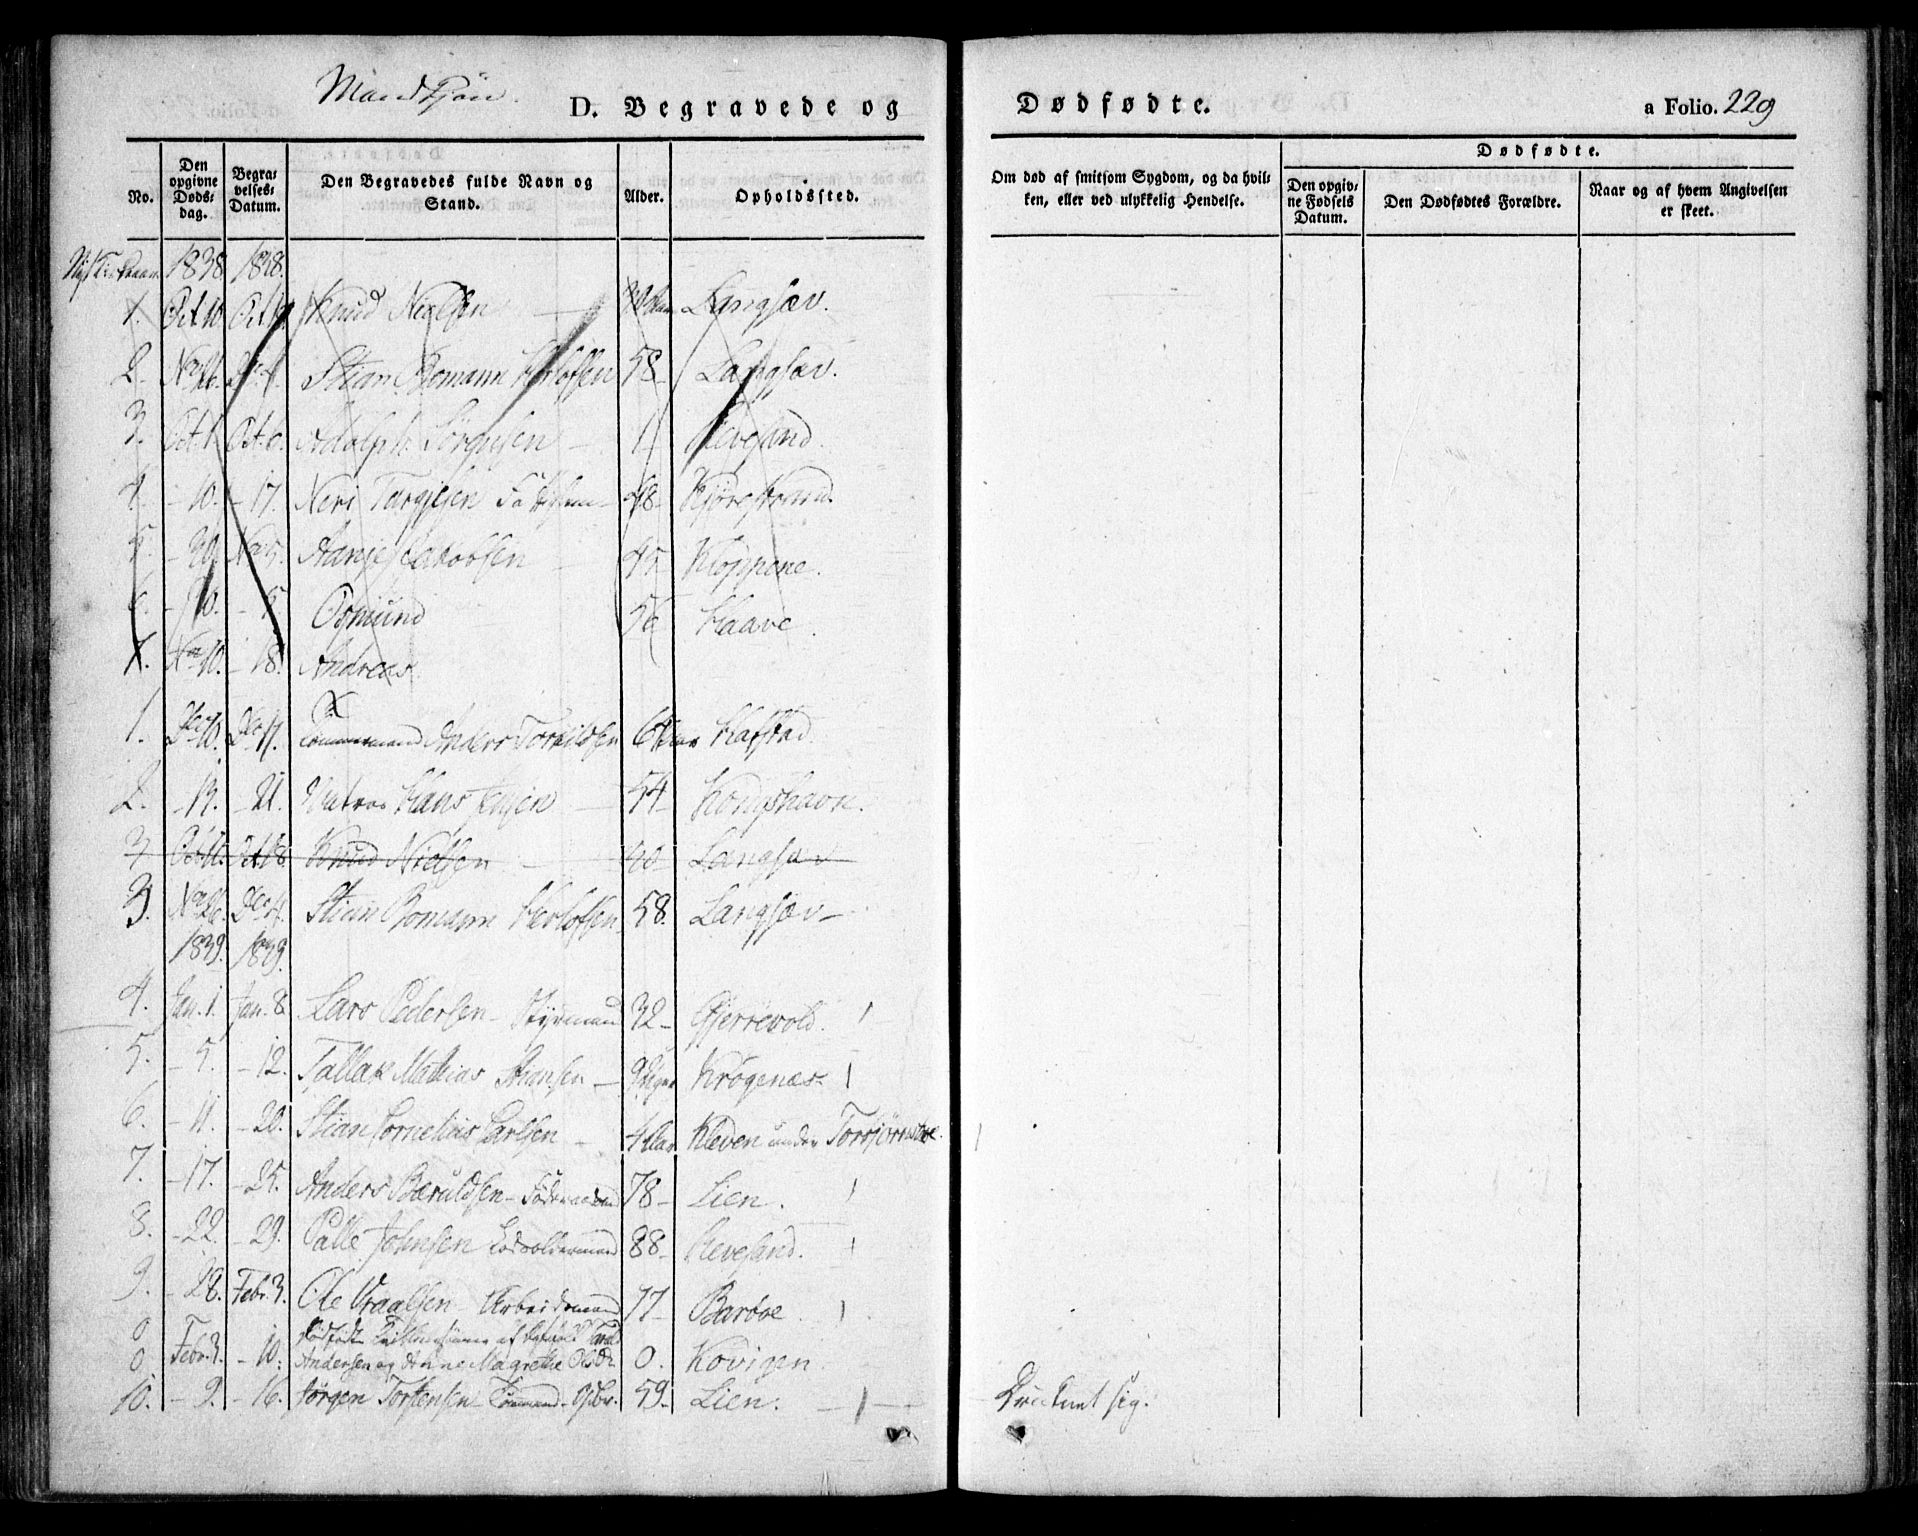 Mandkjön.
D. Begravede og Dødfødte.
a Folio. 229
No.
Den opgivne Døds-dag.
Begra-velses-Datum.
Den Begravedes fulde Navn og Stand.
Alder.
Opholdssted.
Om død af smitsom Sygdom, og da hvil-ken, eller ved ulykkelig Hendelse.
Dødfødte.
Den opgiv-ne Fødsels Datum.
Den Dødfødtes Forældre.
Naar og af hvem Angivelsen er skeet.
1838. 1838.
1. Oct 10. Knud Nielsen Langsæv.
2. Nov 26. Dec 4. Stian Bomann Herlofsen 58 - Langsæv.
3. Oct. 1. Oct. 6. Adolph Jörgensen - 1 - Revesand.
4. - 10. - 17. Neri Targjesen 48 -
5. - 30. Nov 5. Aanje Jakobsen 45 Kloppene.
6. - 30. - 5. Osmund 56 Haave.
7. Nov 10. - 18. Andreas
1. Dec 10. Dec 17. Tömmermand Anders Torkildsen 64 Aar Hafstad.
2. - 13. - 21. Matros Hans Jensen 54 - Kongshavn.
3 Oct 11. Oct 18. Knud Nielsen - 40 - Langsæv
3. Nov 26. Dec 4. Stian Bomann Herlofsen 58. Langsæv -
1839. 1839.
4. Jan. 1. Jan. 8. Lars Pedersen - Styrmand 32 - Gjerrevold.
5. - 5. - 12. Tallak Mathias Hansen - 9 Krögenæs
6. - 11. - 20. Stian Cornelius Carlsen - 4 Aar Kleven under
7. - 17. - 25. Anders Bæruldsen - Föderaadsmand 78 - Lien.
8. - 22. - 29. Palle Johnsen Lodsoldermand 88 - Revesand.
9. - 28. Febr. 3. Ole Vraalsen - Arbeidsmand 77 - Baröe.
Dödfödt af
0 Febr. 3. - 10. Andersen og Anne Magrethe Olsdr 0. Kovigen
10. - 9. - 16. Jörgen Torstensen 59. Lien. Druknet sig.